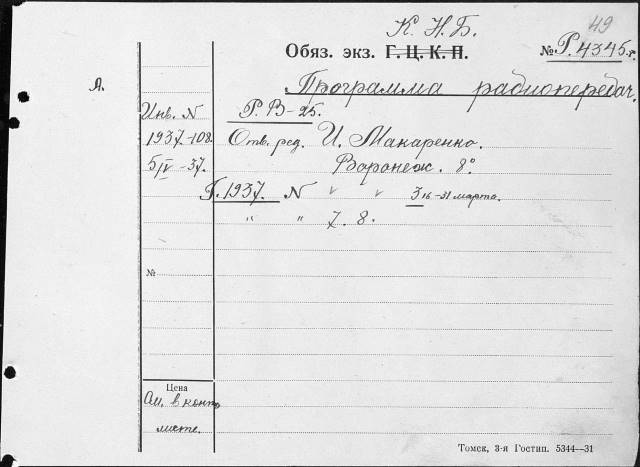 К. Н. Б.
49
Обяз. экз. Г. Ц. К. П.
№ Р. 4345. г.
А.
Программа радиопередач,
Инв. N
Р. В-25.
1937-108.
Отв. ред. И. Макаренко.
5/IV-37.
Воронеж. 8°.
Г. 1937. N v v 3 16-31 марта.
" " 7. 8.
№
Цена
См. в конт.
листе.
Томск, 3-я Гостип. 5344—31